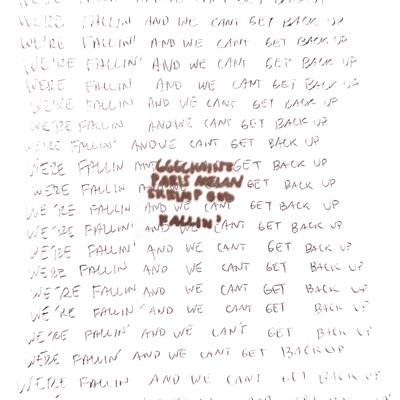 WE'RE FALLIN AND WE CANT GET BACK UP
WE'RE FALLIN AND WE CANT GET BACK UP
WE'RE FALLIN' AND WE CANT GET BACK UP
WE'RE FALLIN' AND WE CANT GET BACK UP
WERE FALLIN AND WE CANT GET BACK UP
WERE FALLIN AND WE CANT GET BACK UP
WE'RE FALLIN AND WE CANT GET BACK UP
WE'RE FALLIN' AND WE CANT GET BACK UP
WERE FALLIN GET BACK UP
PARIS
WERE FALLIN GET BACK UP
WE'RE FALLIN AND WE GET BACK UP
FALLIN'
WE'RE FALLIN' AND WE CANT GET BACK UP
WE'RE FALLIN' AND WE CANT GET BACK UP
WERE FALLIN AND WE CANT GET BACK UP
WE'RE FALLIN AND WE CANT GET BACK UP
WE'RE FALLIN' AND WE CANT GET BACK UP
WE'RE FALLIN' AND WE CAN'T GET BACK UP
WE'RE FALLIN' AND WE CANT GET BACK UP
WERE FALLIN AND WE CANT GET BACK UP